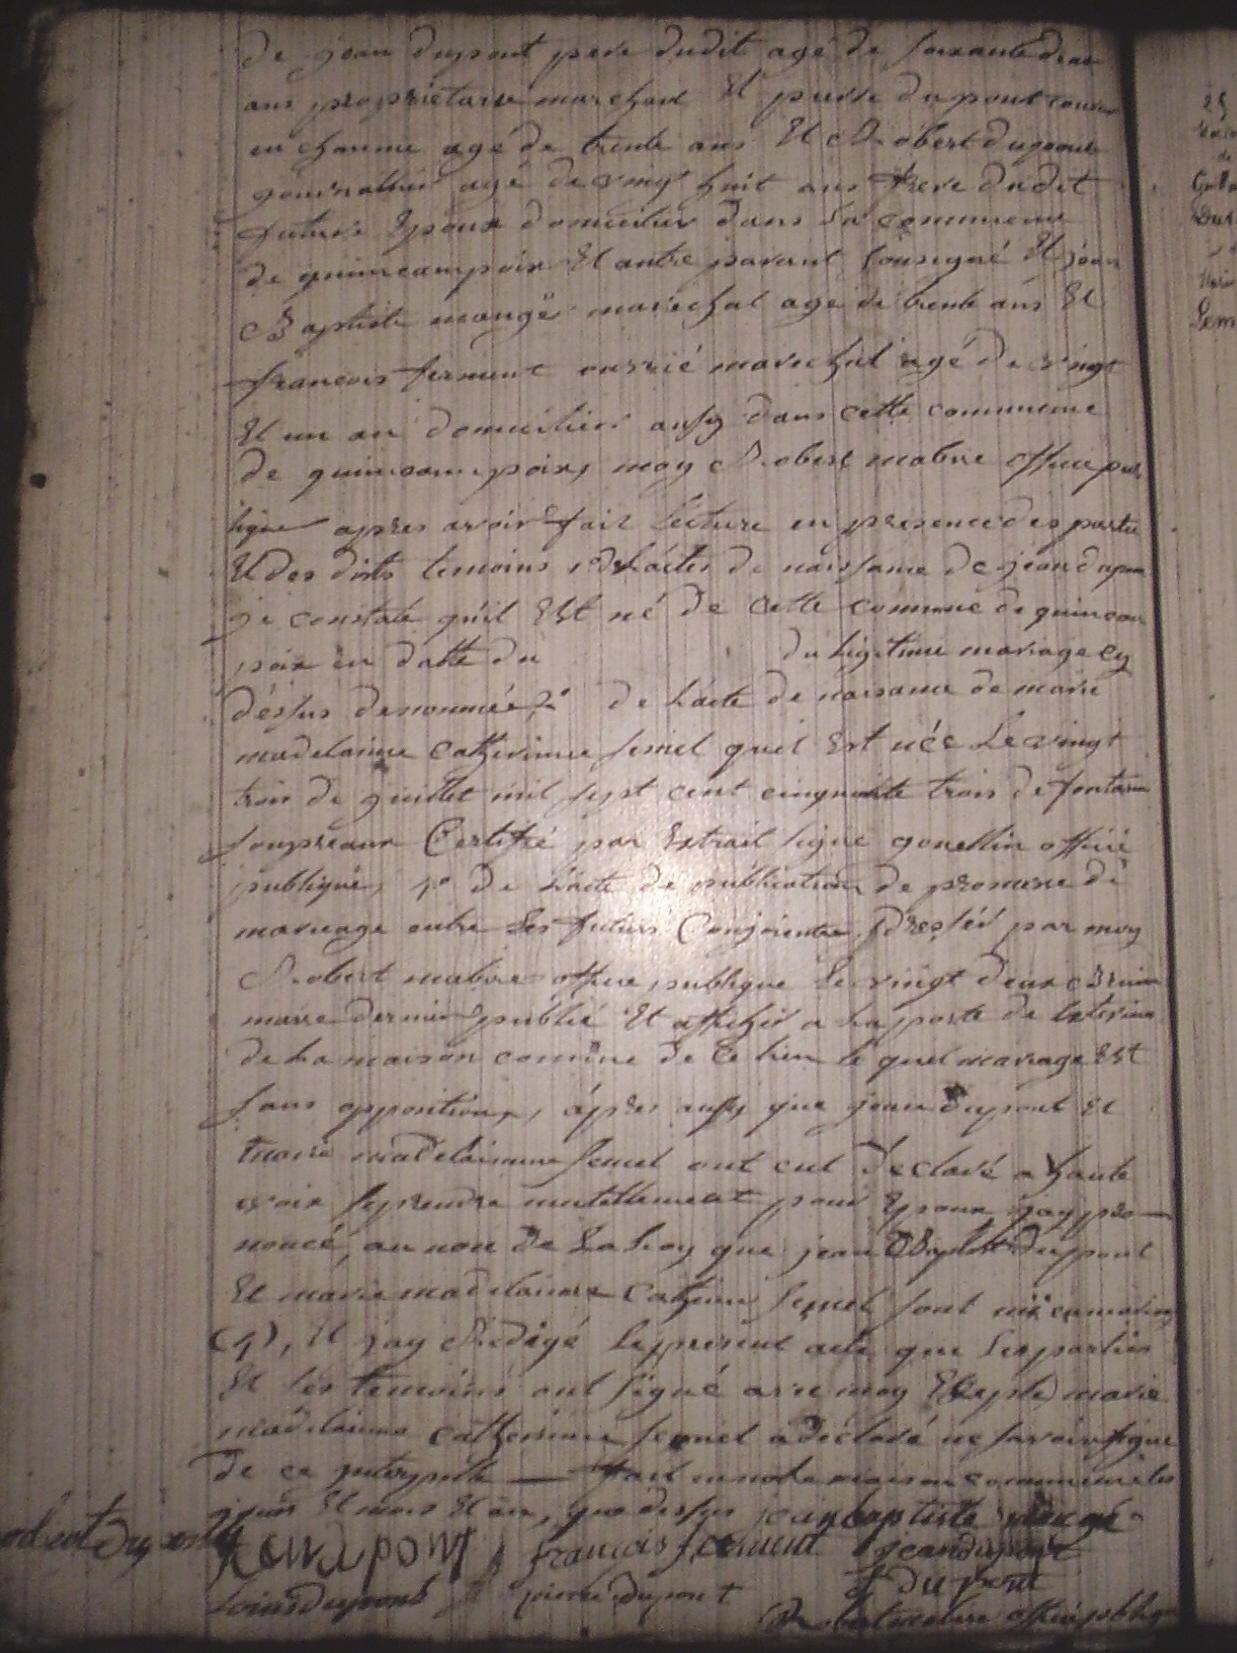 de jean dupont pere dudit agé de soixante deux
ans proprietaire marchant Et pierre dupont couvreur
en chaume agé de trente ans Et Robert dupont
journallier agé de vingt huit ans frere dudit
future Epoux domicilier dans la commune
de quincampoix Et autre parant sousigné Et jean
Baptiste mangé marechal age de trente ans Et
francois ferment ouvrié marechal agé de vingt
Et un an domicilier ausy dans cette commune
de quincampoix, moy Robert mabire officie pub
lique apres avoir fait lecture en presence des partie
Et des dits temoins 1° de Lactes de naissance de jean dupon
je constate qu'il Est né de cette commune de quincam
poix en datte du du legitime mariage cy
dessus denommée 2° de Lacte de naisance de marie
madelainne Catherinne semel quel Est née Le vingt
trois de juillet mil sept cent cinquante trois de fontaine
sous preaux Certifié par Extrait signé gouellin officié
publique, 4° de Lacte de publication de promesse de
mariage entre Les futurs Conjointes Dressés par moy
Robert mabire officie publique Le vingt deux Brum
maire dernier publié Et affiché a La porte de Exterieur
de La maison commune de Ce lieu le quel mariage Est
sans opposition, apres ausy que jean dupont Et
marie madelainne semel ont eut declaré a haute
voix se prendre mutuellement pour Epoux jay pro
noncé, au nom de La Loy que jean Baptiste dupont
Et marie madelainne Catherinne semel sont uni en mariage
Et jay Redigé Le present acte que Les parties
Et Les temoins ont signé avec moy Excepté marie
madelainne catherinne semel a déclaré ne savoir signe
de ce interpellé fait en notre maison commune Les
jours Et mois Et an, que dessus jean baptiste mangé
robert dupont dupont francois ferment jean dupont
J dupont
Louis dupont pierre dupont
Robert mabire officié publiq